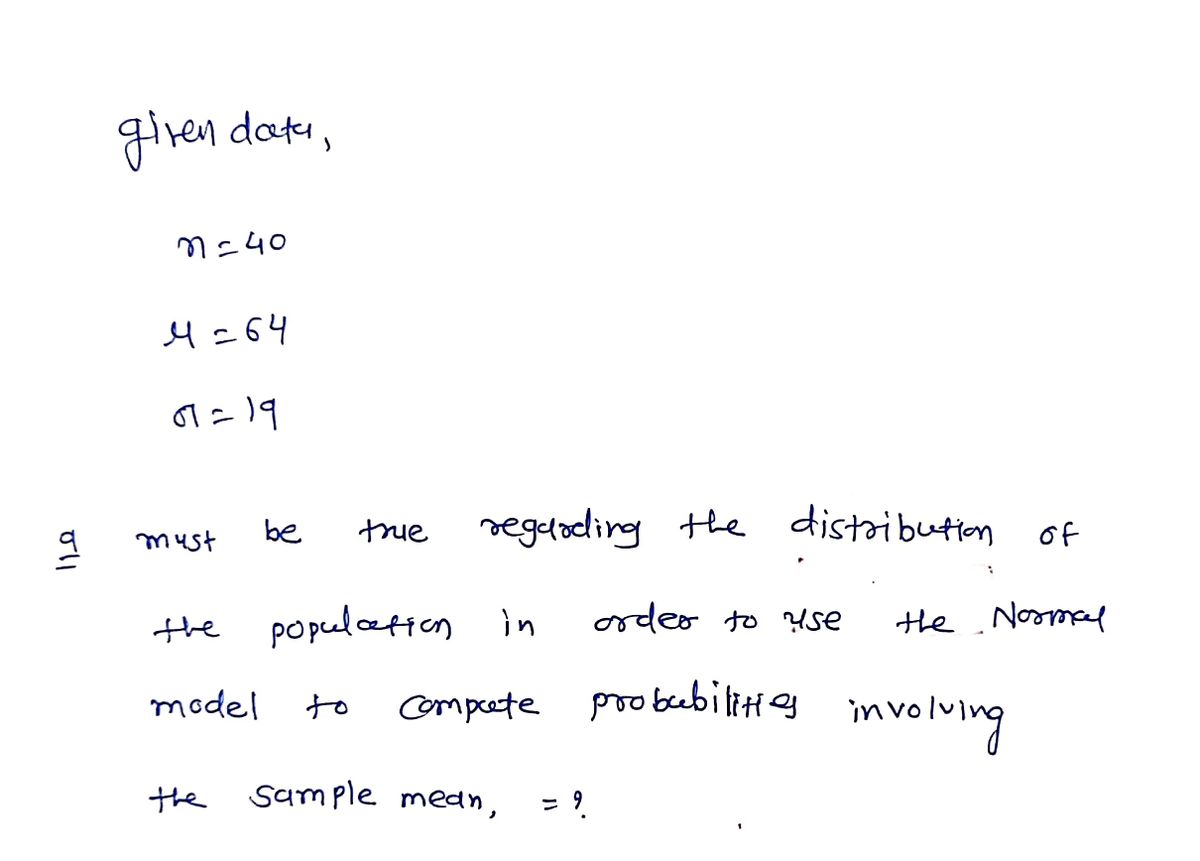 given data,
n = 40
μ = 64
σ = 19
a must be true regarding the distribution of
the population in order to use the Normal
model to compute probabilities involving
the sample mean, = ?